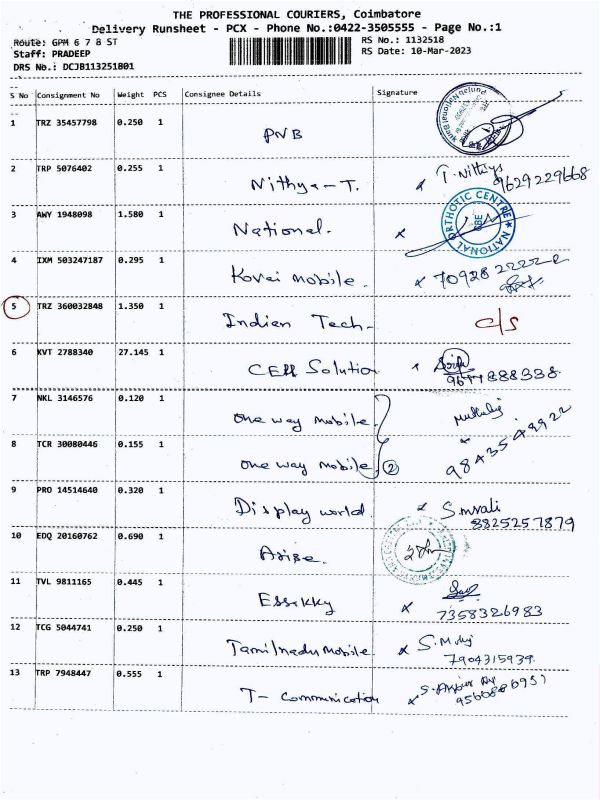 THE PROFESSIONAL COURIERS, Coimbatore
Delivery Runsheet - PCX - Phone No.:0422-3505555 - Page No.:1
Route: GPM 6 7 8 ST RS No.: 1132518
Staff: PRADEEP RS Date: 10-Mar-2023
DRS No.: DCJB113251801
S No Consignment No Weight PCS Consignee Details Signature
1 TRZ 35457798 0.250 1 PNB
2 TRP 5076402 0.255 1 Nithya-T. T. Nithya
9629229668
3 AWY 1948098 1.580 1 National. ORTHOTIC CENTRE NATIONAL
4 IXM 503247187 0.295 1 Kovai mobile. 709282222
5 TRZ 360032848 1.350 1 Indian Tech- c/s
6 KVT 2788340 27.145 1 CEll Solution
888338
7 NKL 3146576 0.120 1 one way mobile
8 TCR 30080446 0.155 1 one way mobile 2
9843549922
9 PRO 14514640 0.320 1 Display world. S.mrali
8825257879
10 EDQ 20160762 0.690 1 Arise.
11 TVL 9811165 0.445 1 Essakky
7358326983
12 TCG 5044741 0.250 1 Tamilnadu Mobile
7904315939.
13 TRP 7948447 0.555 1 T- Communication